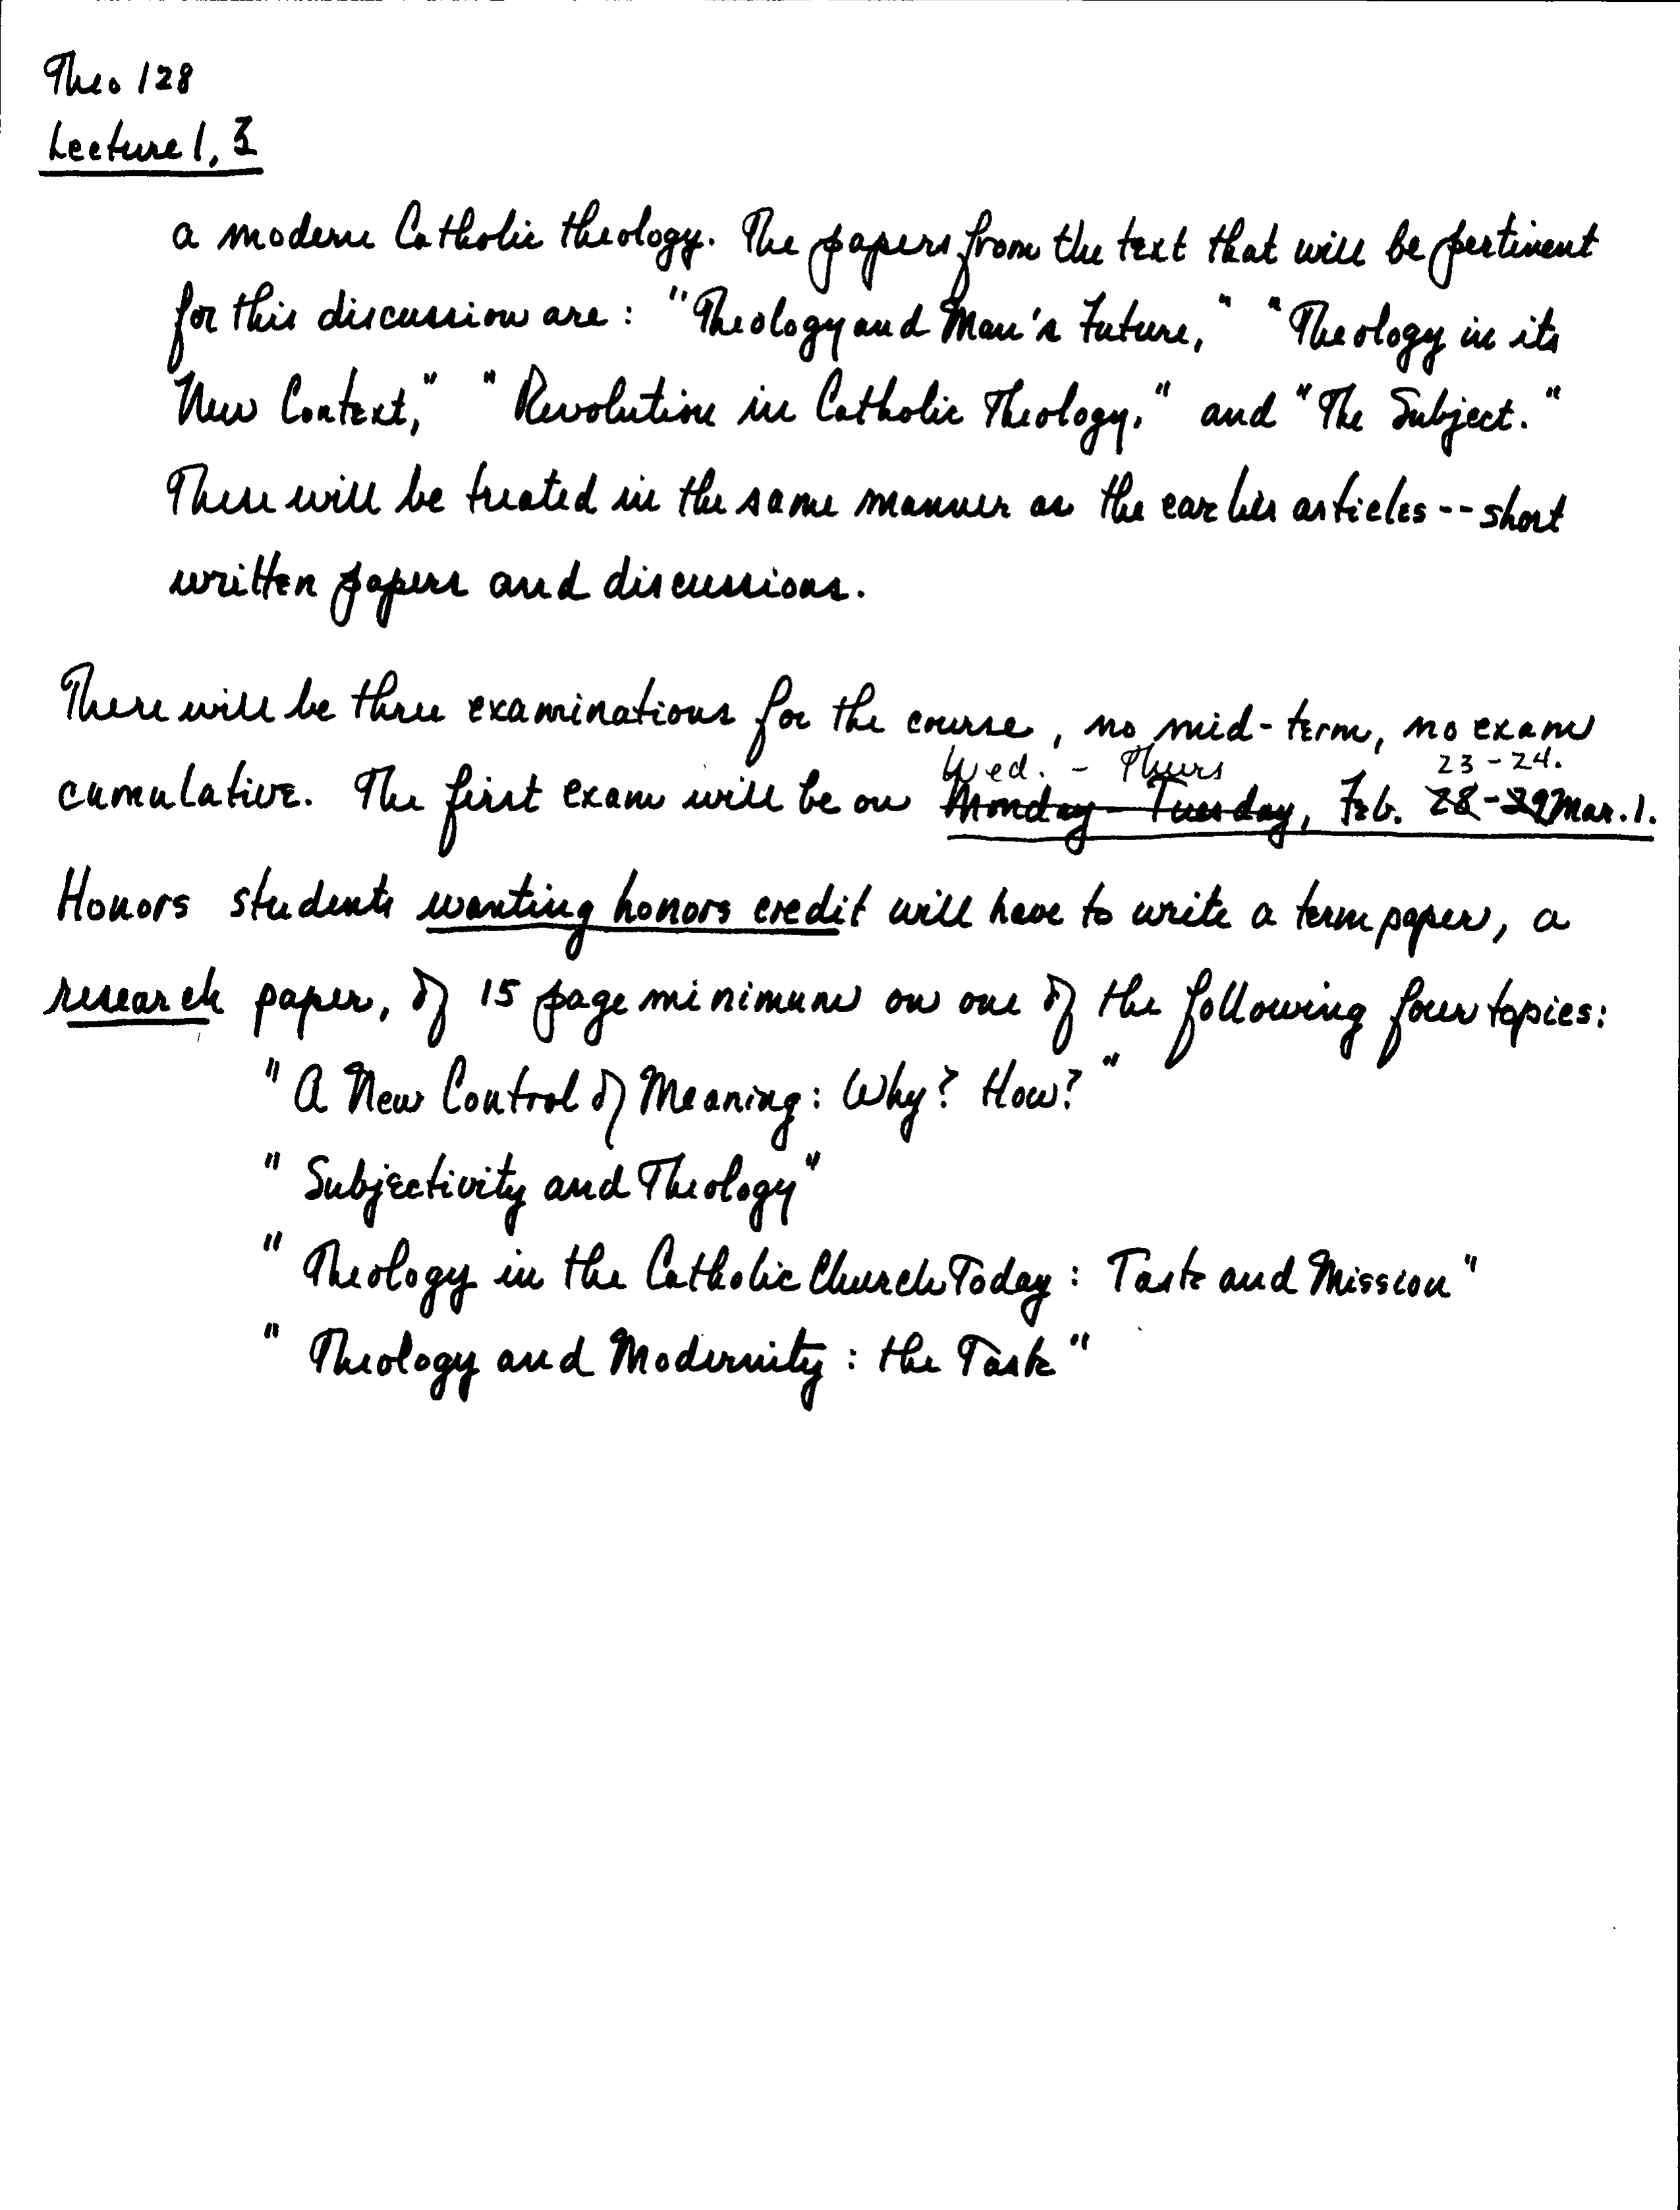 Theo 128
Lecture 1, 3
a modern Catholic theology. The papers from the text that will be pertinent
for this discussion are: "Theology and Man's Future," "Theology in its
New Context," "Revolution in Catholic Theology," and "The Subject."
These will be treated in the same manner as the earlier articles -- short
written papers and discussions.
There will be three examinations for the course, no mid-term, no exam
Wed. - Thurs 23-24.
cumulative. The first exam will be on Monday-Tuesday, Feb. 28-29 Mar. 1.
Honors students wanting honors credit will have to write a term paper, a
research paper, of 15 page minimum on one of the following four topics:
"A New Control of Meaning: Why? How?"
"Subjectivity and Theology"
"Theology in the Catholic Church Today: Task and Mission"
"Theology and Modernity: the Task"